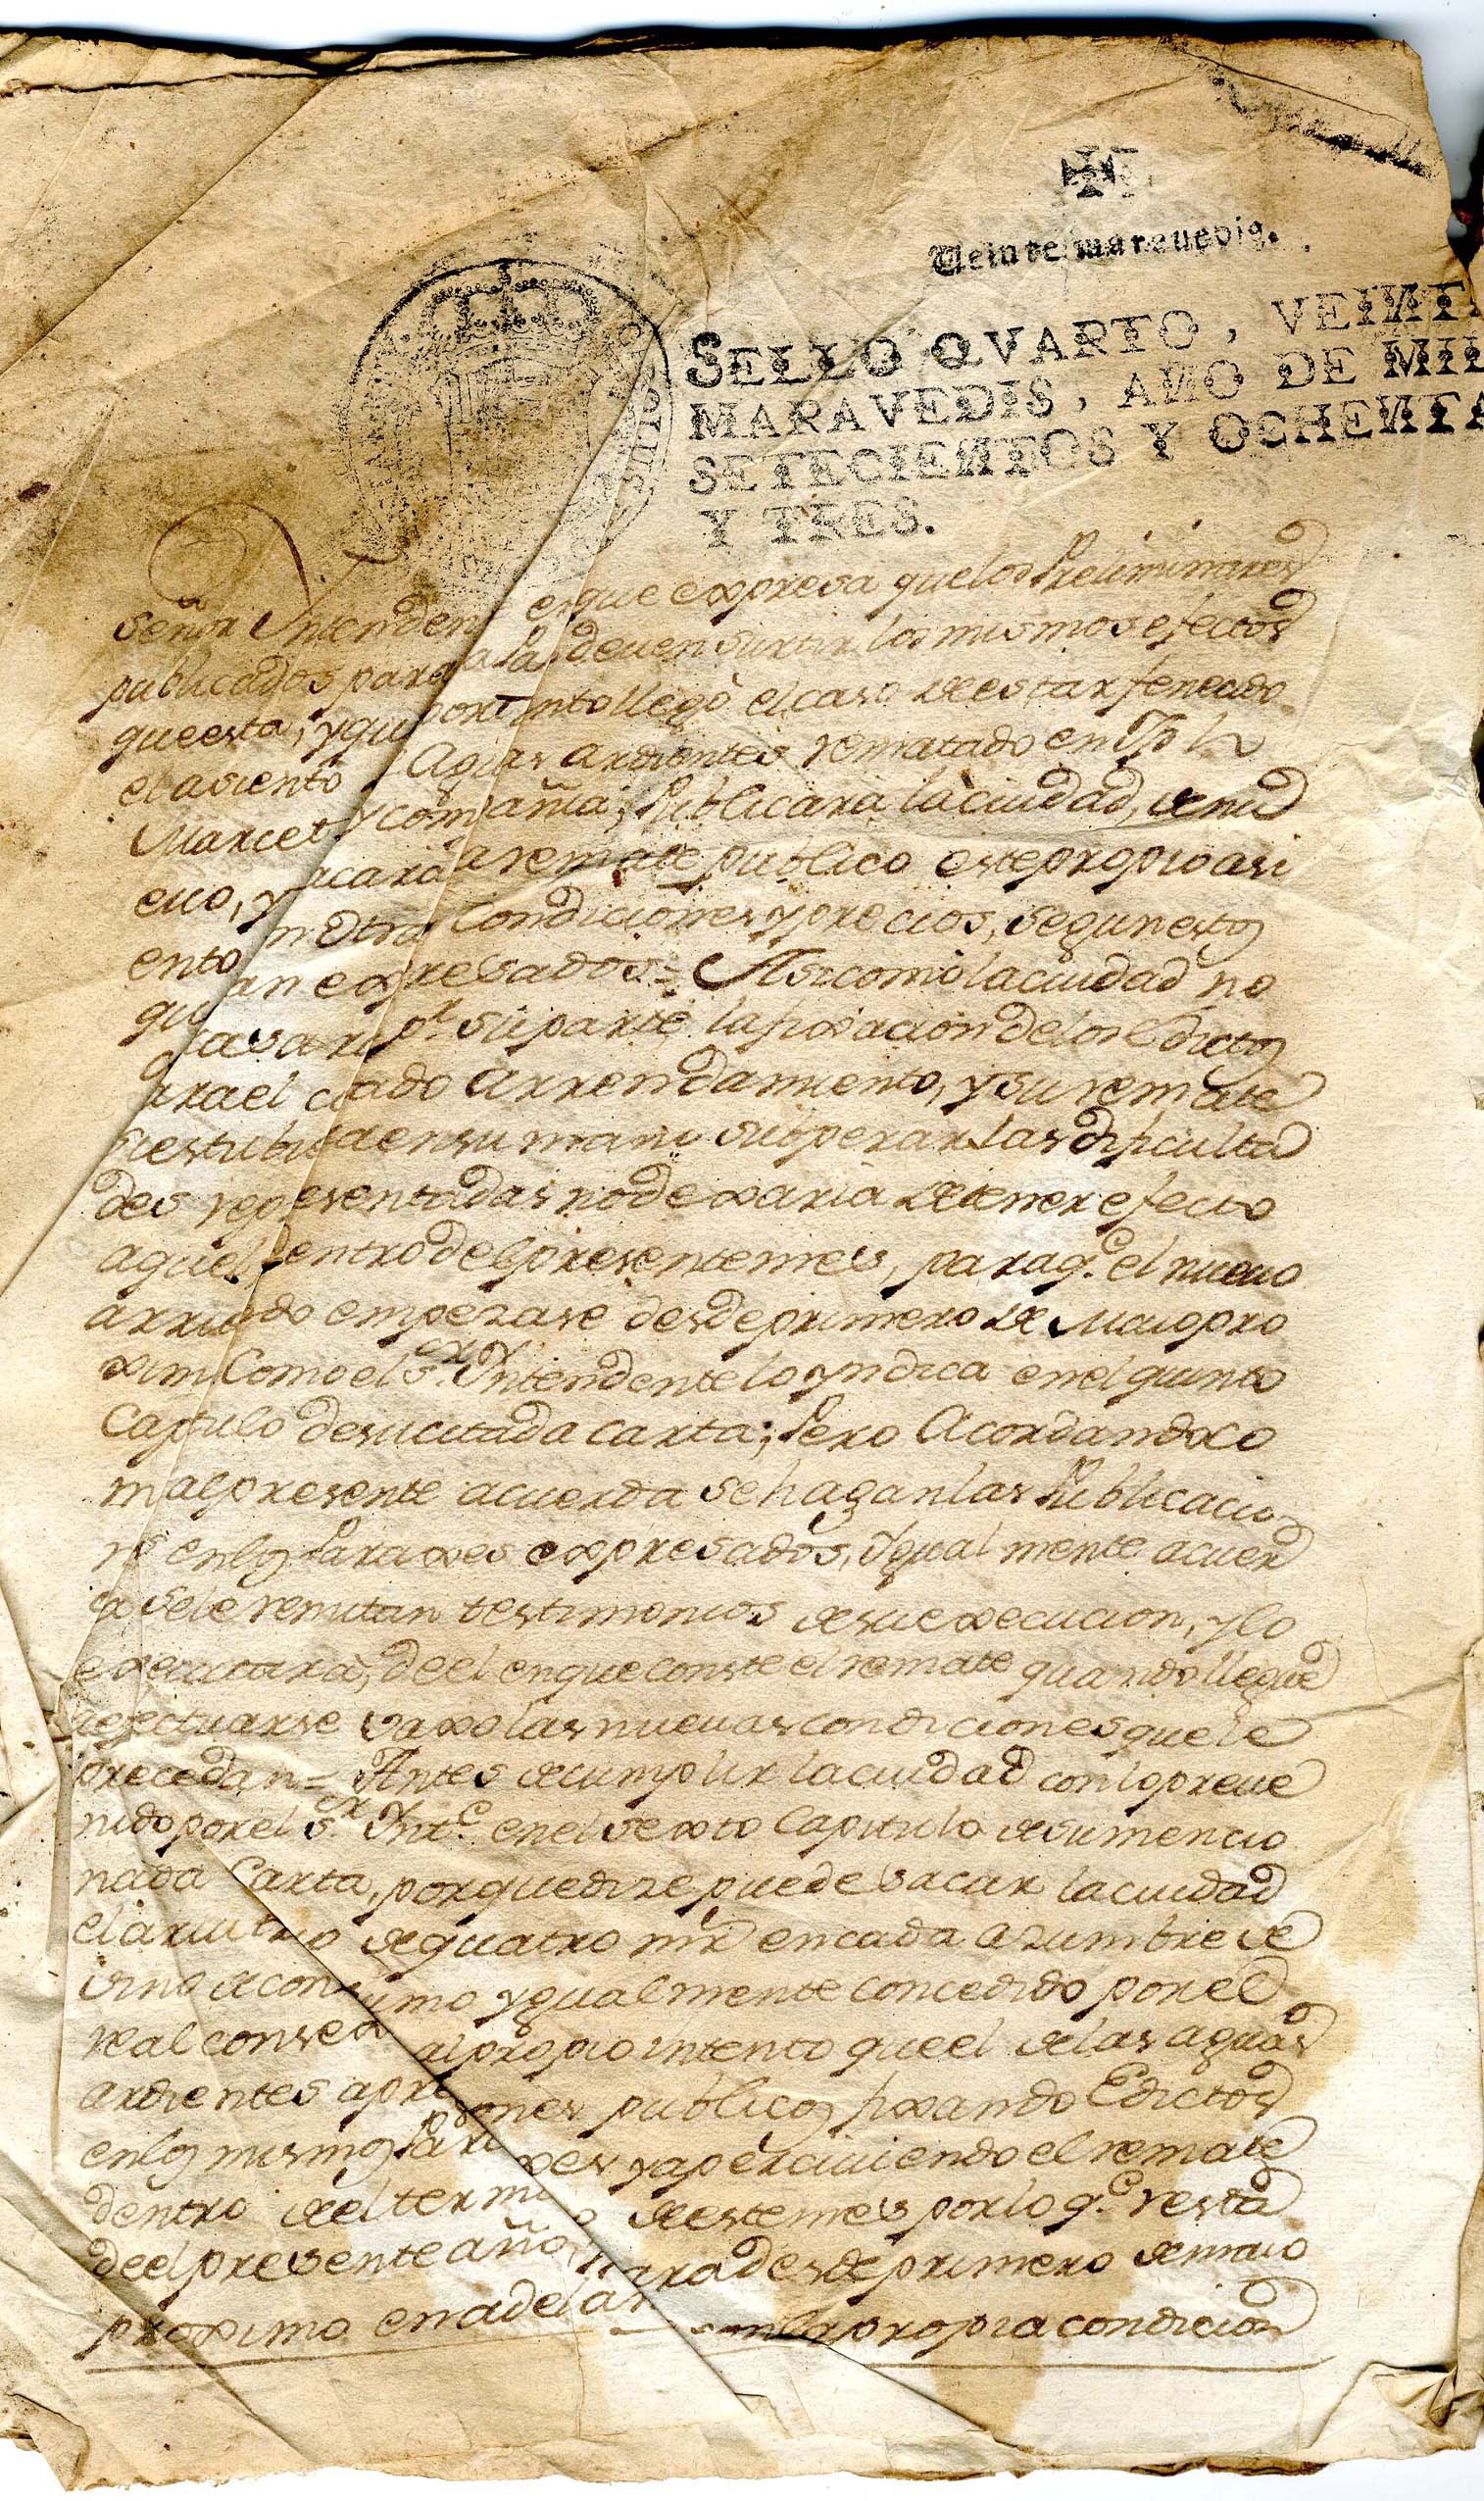 Veinte maravedis.
SELLO QVARTO, VEINTE
MARAVEDIS, AÑO DE MIL
SETECIENTOS Y OCHENTA
Y TRES.
Señor Intenden en que expresa que los Preliminares
publicados para la Paz deven surtir los mismos efectos
que esta, y que por tanto llegò el caso de estar fenecido
el asiento Aguas ardientes rematado en
Marcet y compañia, Publicarà la ciudad, de nu
evo, y sacarà a remate publico este propio asi
ento en otras Condiciones y precios, segun estos
que expresados = Asi como la ciudad no
p.r su parte, la fixacion de los edictos
para el citado Arrendamiento, y su remate
si estubiera en su mano superar las dificulta
des representadas no dexaria de tener efecto
aquel dentro del presente mes, para q.e el nuevo
arriendo empezase desde primero de Maio pro
xim Como el S.or Yntendente lo yndica en el quinto
Capitulo de su citada carta; Pero Acordandoco
m al presente acuerda se hagan las Publicacio
ns en los Paraxes expresados, Ygualmente acuer
da se le remitan testimonios de su execucion, y lo
executarà, de el en que conste el remate quando llegue
a efectuarse vaxo las nuevas condiciones que le
precedan = Antes de cumplir la ciudad con lo preve
nido por el S.r Ynt.e en el sexto Capitulo de su mencio
nada Carta, porque dize puede sacar la ciudad
el arvitrio de quatro mrs en cada azumbre de
vino de consumo ygualmente concedido por el
real consexo al propio intento que el de las aguas
ardientes a pregones publicos fixando Edictos
en los mismos Paraxes y aperciviendo el remate
dentro del termino de este mes por lo q.e resta
de el presente año, para desde primero de maio
proximo en adelan con la propia condicion